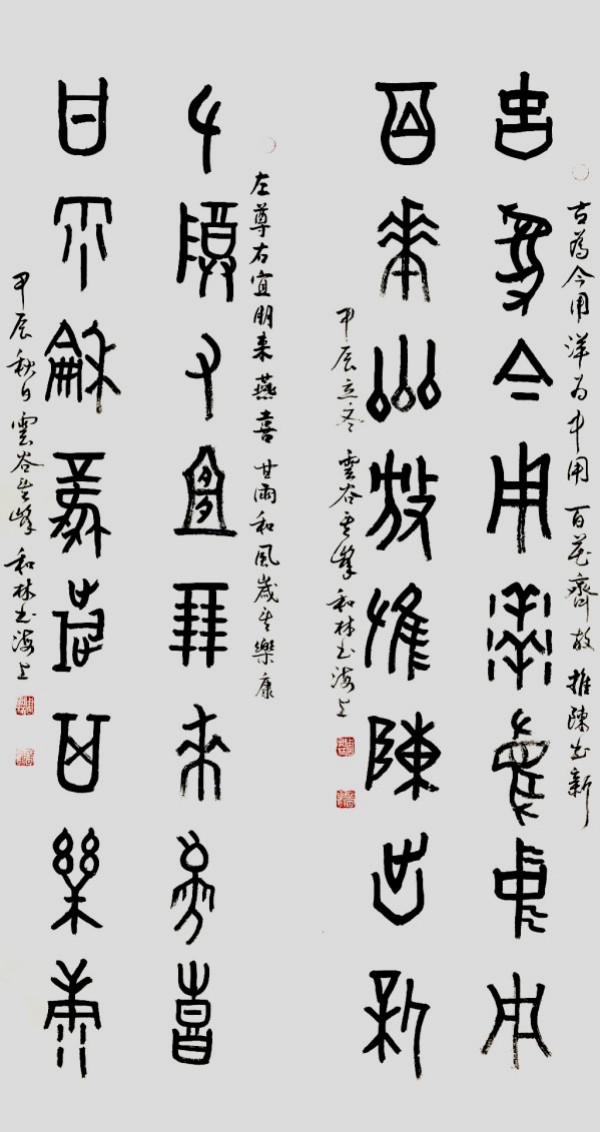 古為今用 洋為中用 百花齊放 推陳出新
古為今用洋為中用
百花齊放推陳出新
甲辰立冬 雲谷其峰 和林书海上
左尊右宜朋来燕喜 甘雨和風歲其樂康
左尊右宜朋來燕喜
甘雨和風歲其樂康
甲辰秋日雲谷其峰 和林书海上